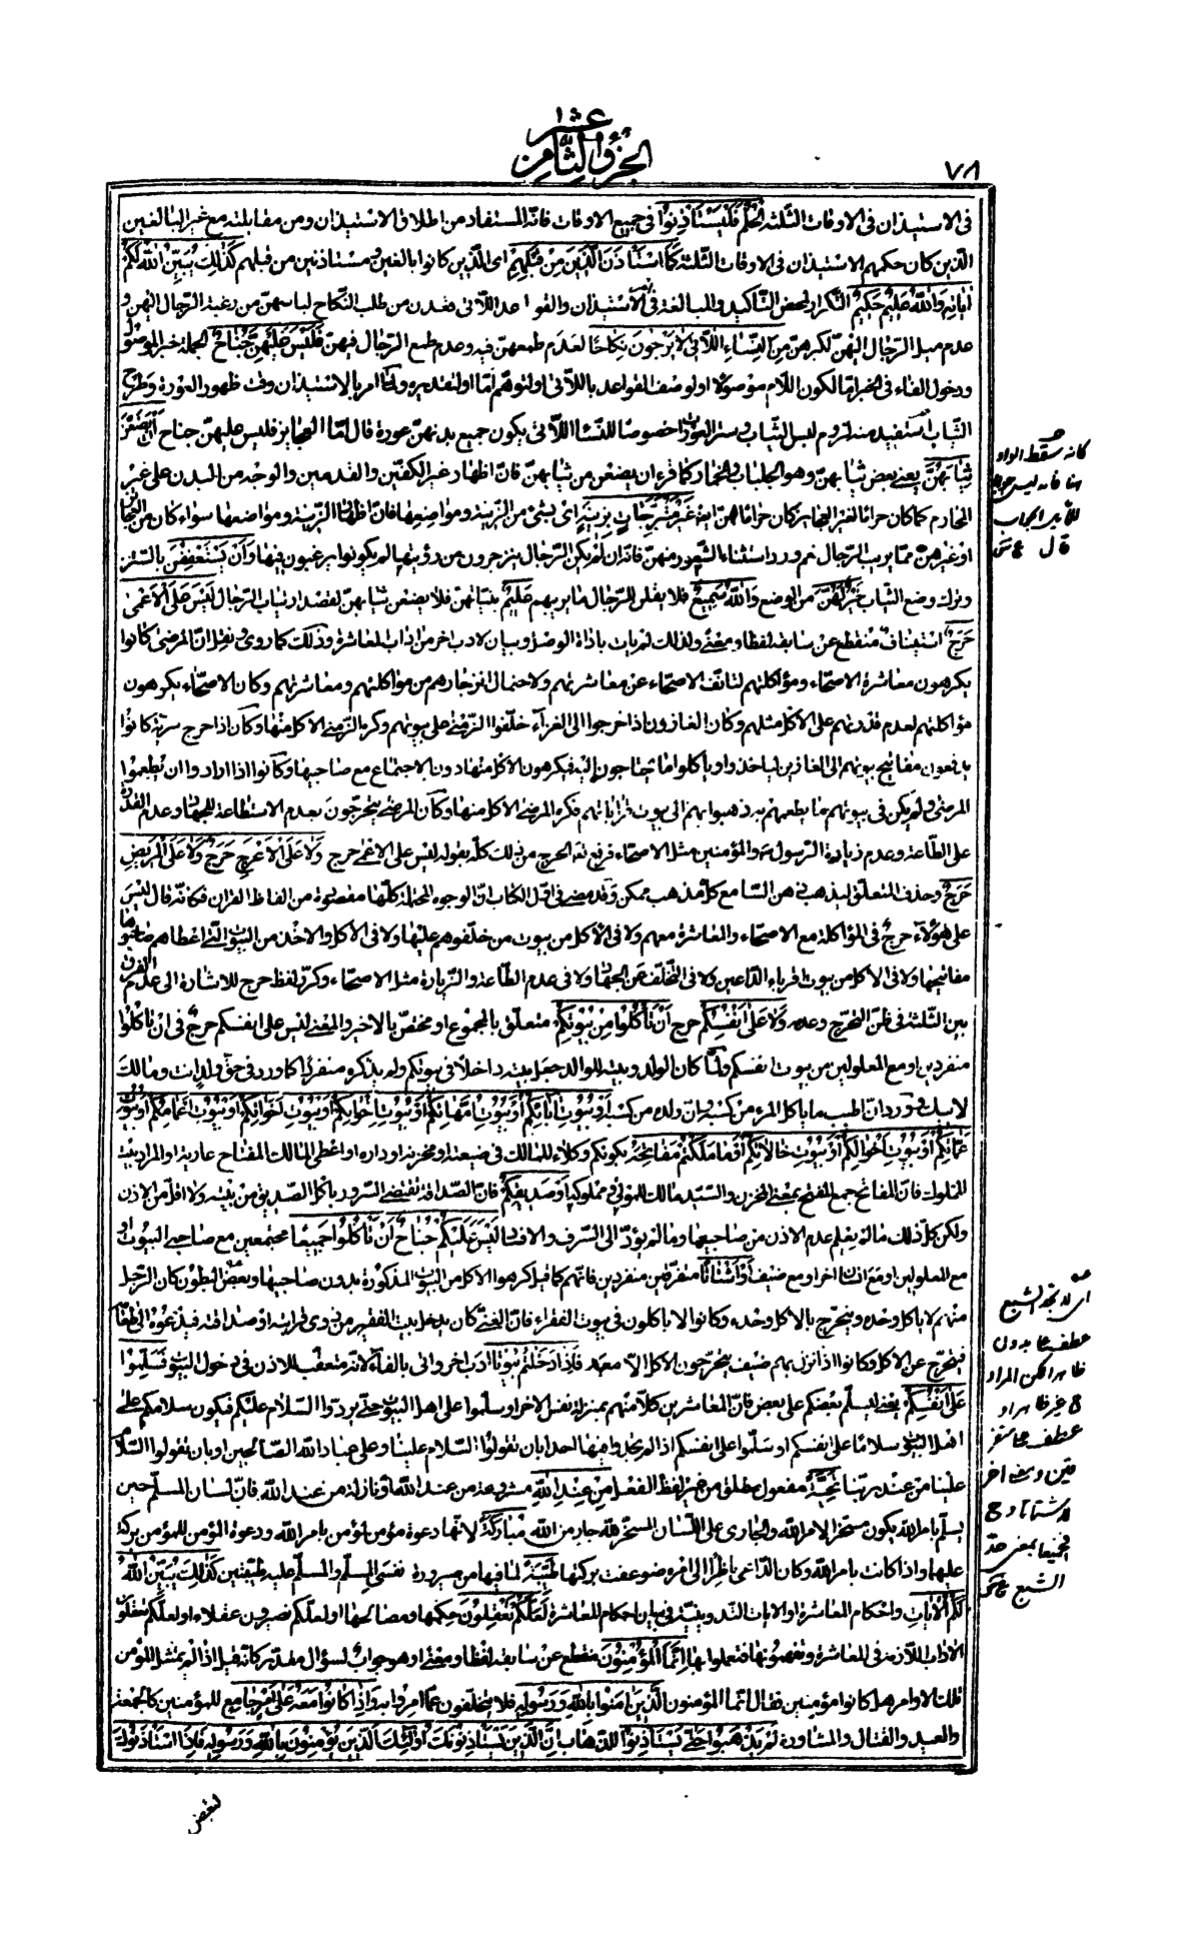 ٧٨
الجزؤ الثامن عشر
فى الاستيذان فى الاوقات الثلثة الحلم فليستأذنوا فى جميع الاوقات فانه المستفاد من اطلاق الاستيذان ومن مقابلته مع غير البالغين
الذين كان حكمهم الاستيذان فى الاوقات الثلثة كما استأذن الذين من قبلهم اى الذين كانوا بالغين ومستاذنين من قبلهم كذلك يبين الله لكم
اياته والله عليم حكيم التكرار لمحض التأكيد والمبالغة فى الاستيذان والقواعد اللاتى قعدن من طلب النكاح لياسهن من رغبة الرجال اليهن و
عدم ميل الرجال اليهن لكبرهن من النساء اللاتى لا يرجون نكاحا لعدم طمعهن فيه وعدم طمع الرجال فيهن فليس عليهن جناح الجملة خبر الموصول
ودخول الفاء فى الخبر اما لكون اللام موصولا او لوصف القواعد باللاتى او لتوهم اما او لتقديره ولما امر بالاستيذان وقت ظهور العورة وطرح
الثياب استفيد منه لزوم لبس الثياب وستر العورة خصوصا للنساء اللاتى يكون جميع بدنهن عورة قال اما العجايز فليس عليهن جناح ان يضعن
ثيابهن يعنى بعض ثيابهن وهو الجلباب والخمار كما قرء ان يضعن من ثيابهن فان اظهار غير الكفين والقدمين والوجه من البدن على غير
المحارم كما كان حراما لغير العجايز كان حراما لهن ايضا غير متبرجات بزينة اى بشئ من الزينة ومواضعها فان اظهار الزينة ومواضعها سواء كان من العجايز
او غيرهن مما يريب الرجال غير ورد استثناء الشعور منهن فانه ان لم يكن الرجال ينزجرون من رؤيتها لم يكونوا يرغبون فيها وان يستعففن بالتستر
وترك وضع الثياب خير لهن من الوضع والله سميع فلا يقلن للرجال ما يريبهم عليم بنياتهن فلا يضعن ثيابهن لقصد ارتياب الرجال ليس على الاعمى
حرج استيناف منقطع عن سابقه لفظا ومعنى ولذلك لم يات باداة الوصل وبيان لادب اخر من اداب المعاشرة وذلك كما روى ونقل ان المرضى كانوا
يكرهون معاشرة الاصحاء ومؤاكلتهم لتانف الاصحاء عن معاشرتهم ولاحتمال انزجارهم من مواكلتهم ومعاشرتهم وكان الاصحاء يكرهون
مؤاكلتهم لعدم قدرتهم على الاكل مثلهم وكان الغازون اذا خرجوا الى الغزاء خلفوا الزمنى على بيوتهم وكره الزمنى الاكل منها وكان اذا خرج سرية كانوا
يدفعون مفاتيح بيوتهم الى الغازين لياخذوا وياكلوا ما يحتاجون اليه فيكرهون الاكل منها دون الاجتماع مع صاحبها وكانوا اذا ارادوا ان يطعموا
المرضى ولم يكن فى بيوتهم ما يطعمهم به ذهبوا بهم الى بيوت قراباتهم فكره المرضى الاكل منها وكان المرضى يتحرجون بعدم الاستطاعة للجهاد وعدم القدرة
على الطاعة وعدم زيارة الرسول والمؤمنين مثل الاصحاء فرفع الله الحرج من ذلك كله بقوله ليس على الاعمى حرج ولا على الاعرج حرج ولا على المريض
حرج وحذف المتعلق ليذهب ذهن السامع كل مذهب ممكن وقد مضى فى اول الكتاب ان الوجوه المحتملة كلها مقصودة من الفاظ القران فكانه قال ليس
على هؤلاء حرج فى المؤاكلة مع الاصحاء والمعاشرة معهم ولا فى الاكل من بيوت من خلفوهم عليها ولا فى الاكل والاخذ من البيوت التى اعطاهم صاحبوها
مفاتيحها ولا فى الاكل من بيوت اقرباء الداعين ولا فى التخلف عن الجهاد ولا فى عدم الطاعة والزيارة مثل الاصحاء وكرر لفظ حرج للاشارة الى عدم الفرق
بين الثلثة فى ظن التحرج وعدمه ولا على انفسكم حرج ان تأكلوا من بيوتكم متعلق بالمجموع او مختص بالاخير والمعنى ليس على انفسكم حرج فى ان تأكلوا
منفردين او مع المعلولين من بيوت انفسكم ولما كان الولد وبيته للوالد جعل بيته داخلا فى بيوتكم ولم يذكره منفردا كما ورد فى حق ولد انت ومالك
لابيك وورد ان اطيب ما ياكل المرء من كسبه وان ولده من كسبه او بيوت ابائكم او بيوت امهاتكم او بيوت اخوانكم او بيوت اخواتكم او بيوت اعمامكم او بيوت
عماتكم او بيوت اخوالكم او بيوت خالاتكم او ما ملكتم مفاتحه بكونكم وكلاء للمالك فى ضيعته او مخزنه او داره او اعطى المالك المفتاح عارية او المراد بيت
المملوك فان المفاتح جمع المفتح بمعنى المخزن والسيد مالك للمولى فى مملوكيه او صديقكم فان الصداقة تقتضى السرور باكل الصديق من بيته ولا اقل من الاذن
ولكن كل ذلك ما لم يعلم عدم الاذن من صاحبيها وما لم يؤد الى السرف والافساد ليس عليكم جناح ان تأكلوا جميعا مجتمعين مع صاحبى البيوت او
مع المعلولين او مع اناس اخر او مع ضيف او اشتاتا متفرقين منفردين فانهم كما قيل كرهوا الاكل من البيوت المذكورة بدون صاحبيها وبعض البطون كان الرجل
منهم لا ياكل وحده ويتحرج بالاكل وحده وكانوا لا ياكلون فى بيوت الفقراء فان الغنى كان يدخل بيت الفقير من ذوى قرابته او صداقته فيدعوه الى طعامه
فيتحرج عن الاكل وكانوا اذا نزل بهم ضيف يتحرجون الاكل الا معه فاذا دخلتم بيوتا ادب اخر واتى بالفاء لانه متعقب للاذن فى دخول البيوت فسلموا
على انفسكم يعنى ليسلم بعضكم على بعض فان المعاشرين كلا منهم بمنزلة نفس الاخر او سلموا على اهل البيوت حتى يردوا السلام عليكم فيكون سلامكم على
اهل البيوت سلاما على انفسكم او سلموا على انفسكم اذا لم يكن فيها احد بان تقولوا السلام علينا وعلى عباد الله الصالحين او بان تقولوا السلام
علينا من عند ربنا تحية مفعول مطلق من غير لفظ الفعل من عند الله مشروعة من عند الله او نازلة من عند الله فان لسان المسلم حين
يسلم بامر الله يكون مسخرا لامر الله والجارى على اللسان المسخر لله جار من الله مباركة لانها دعوة مؤمن لمؤمن بامر الله ودعوة المؤمن للمؤمن بركة
عليهما واذا كانت بامر الله وكان الداعى ناظرا الى امره ضوعفت بركتها طيبة لما فيها من مسرورة نفسى المسلم والمسلم عليه طيبتين كذلك يبين الله
لكم الايات واحكام المعاشرة او الايات التدوينية فى بيان احكام المعاشرة لعلكم تعقلون حكمها ومصالحها او لعلكم تصيرون عقلاء او لعلكم تعقلون
الاداب اللازمة فى المعاشرة وتفهمونها فتعملوا بها انما المؤمنون منقطع عن سابقه لفظا ومعنى او هو جواب لسؤال مقدر كانه قيل اذا لم يمتثل المؤمن
تلك الاوامر هل كانوا مؤمنين فقال انما المؤمنون الذين امنوا بالله ورسوله فلا يتخلفون عما امروا به واذا كانوا معه على امر جامع للمؤمنين كالجمعة
والعيد والقتال والمشاورة لم يذهبوا حتى يستأذنوه للذهاب ان الذين يستأذنونك اولئك الذين يؤمنون بالله ورسوله فاذا استأذنوك
لبعض
كانه سقط الواو
هنا فانه ليس جوابا
قال
اى لا بقيد الشبع
عطف بيان بدون
ظاهرا لكن المراد
عطف
الشبع